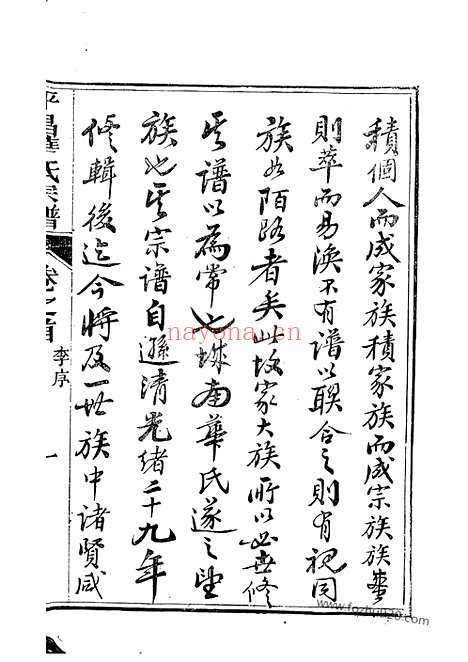 積個人而成家族積家族而成宗族族蕃
則萃而易渙不有譜以聯合之則有視同
族如陌路者矣此故家大族所以必世修
其譜以為常也蛛南華氏遂之望
族也其宗譜自遜清光緒二十九年
修輯後迄今將及一世族中諸賢咸
平昌華氏宗譜
卷之首
李序
一
nayona.cn
www.fozhu920.com